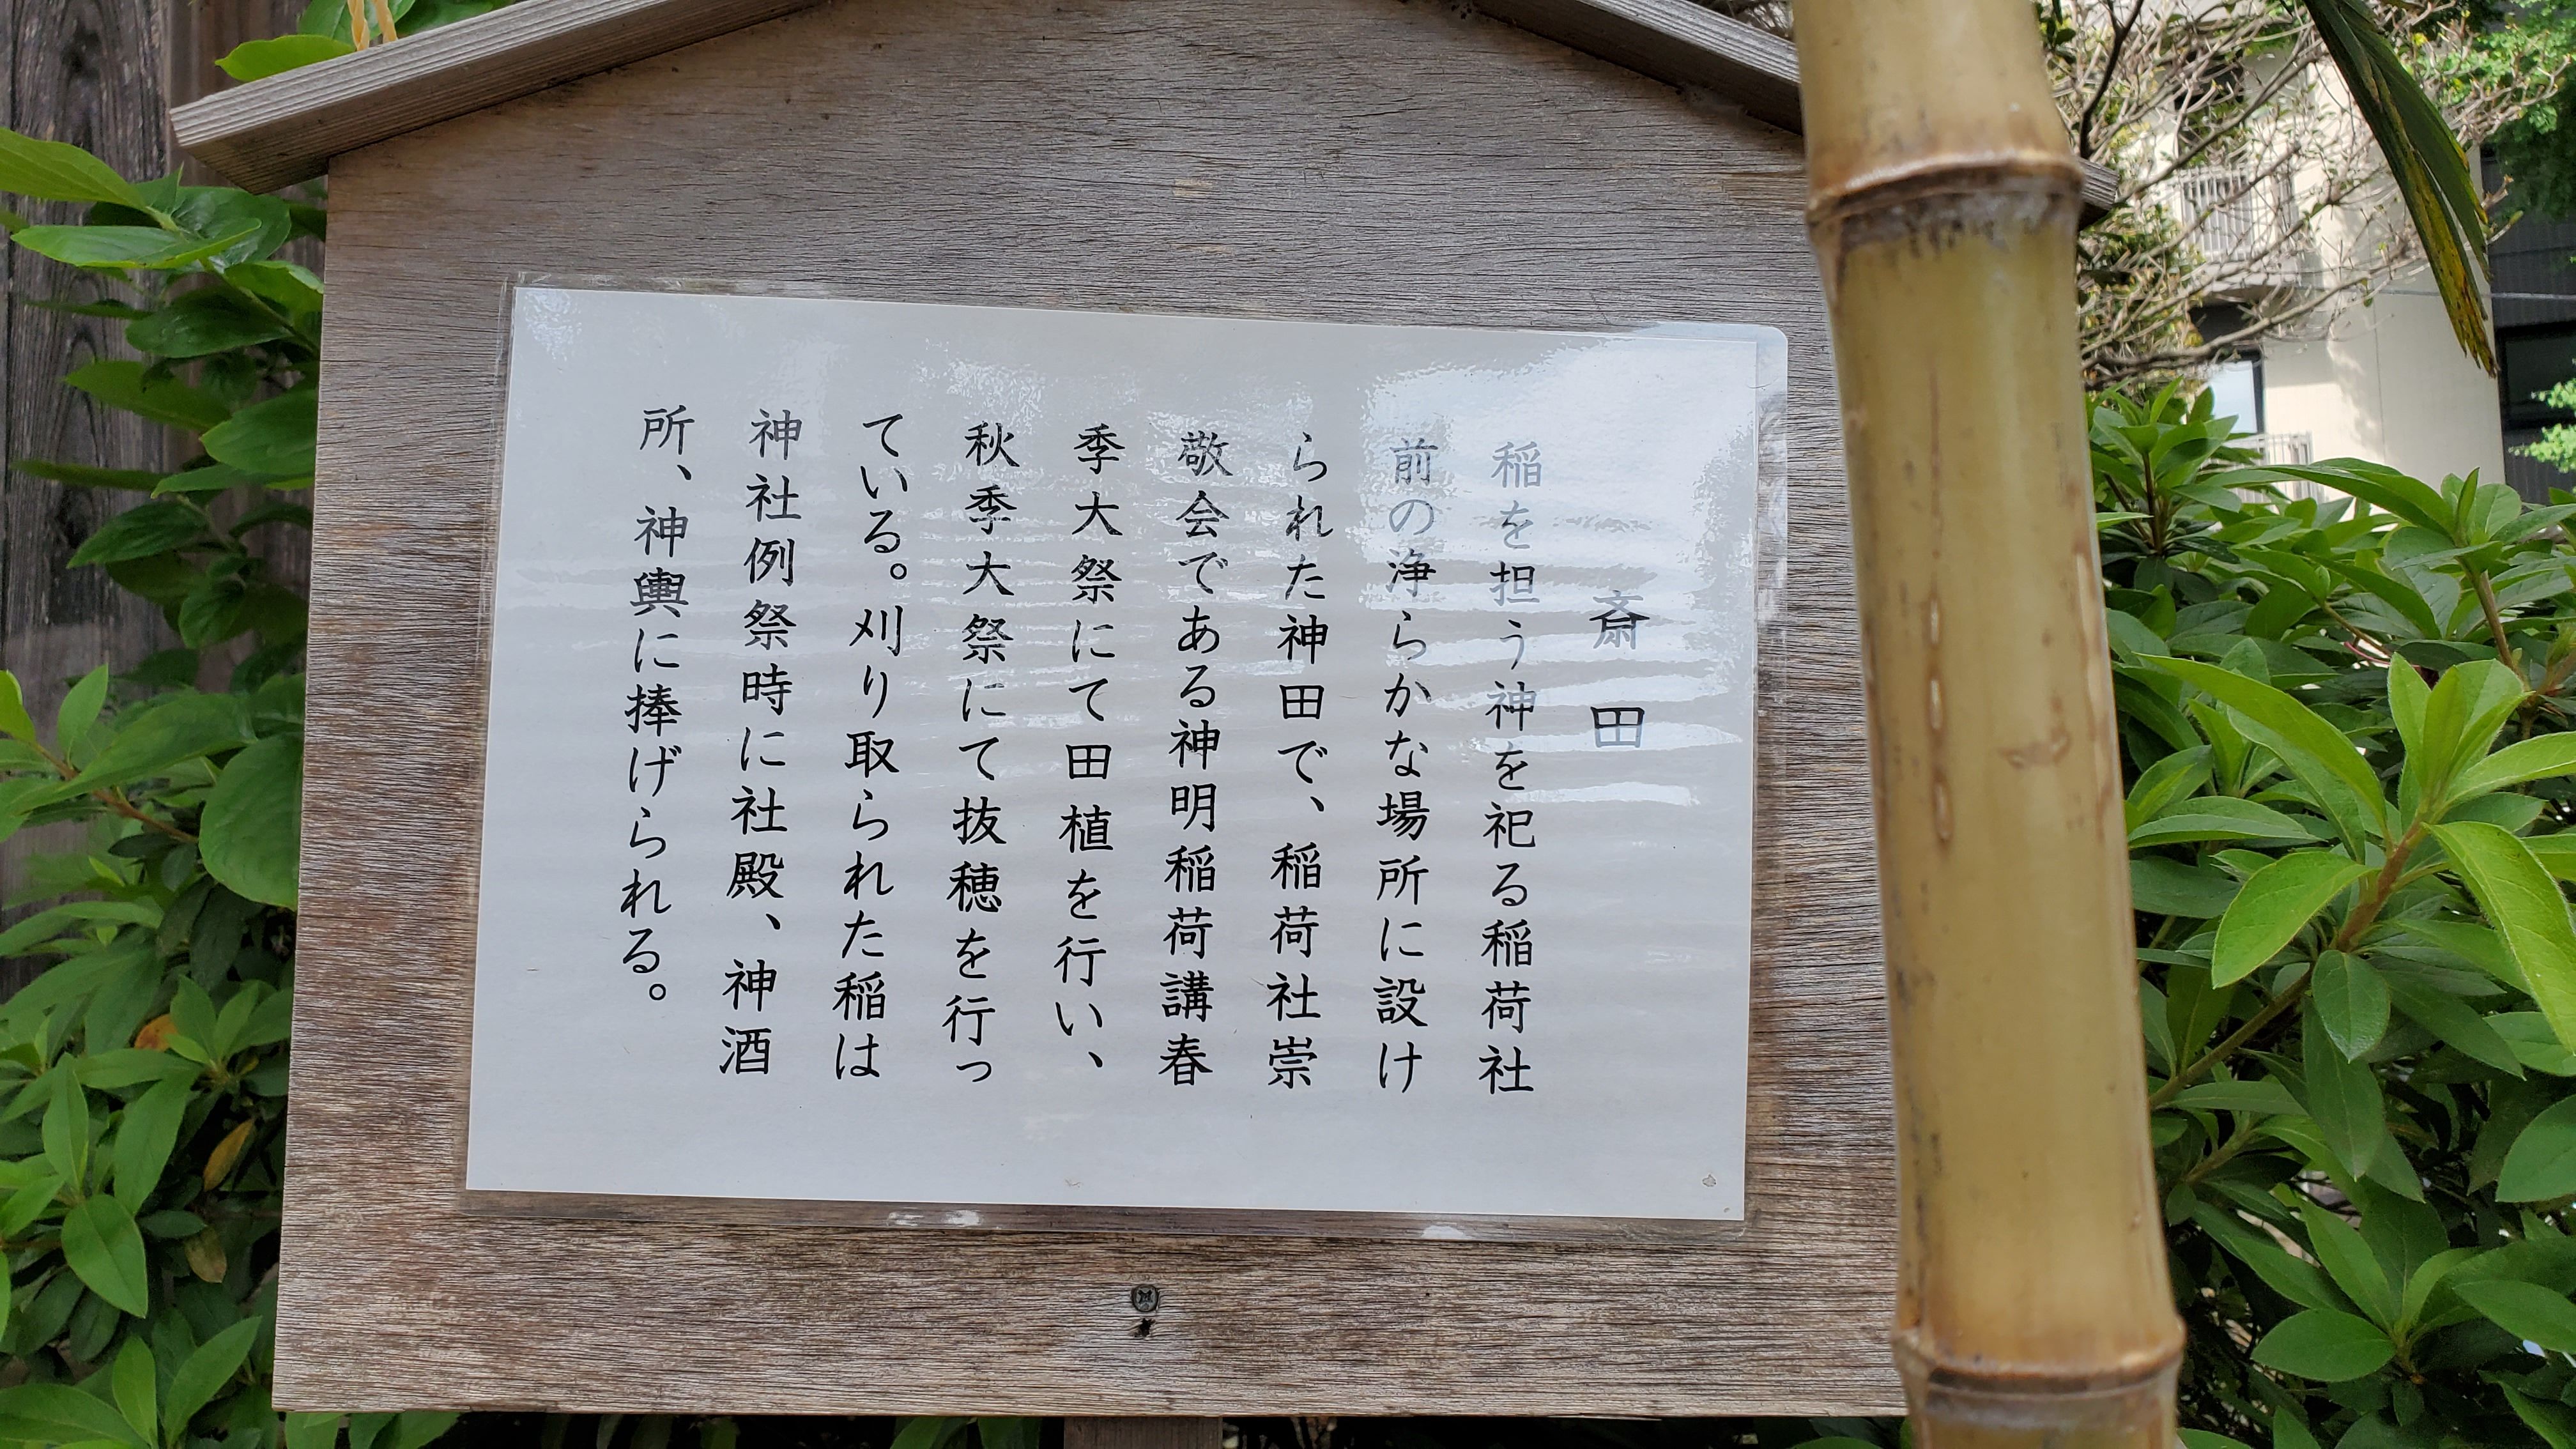 斎田
稲を担う神を祀る稲荷社
前の浄らかな場所に設け
られた神田で、稲荷社崇
敬会である神明稲荷講春
季大祭にて田植を行い、
秋季大祭にて抜穂を行っ
ている。刈り取られた稲は
神社例祭時に社殿、神酒
所、神輿に捧げられる。